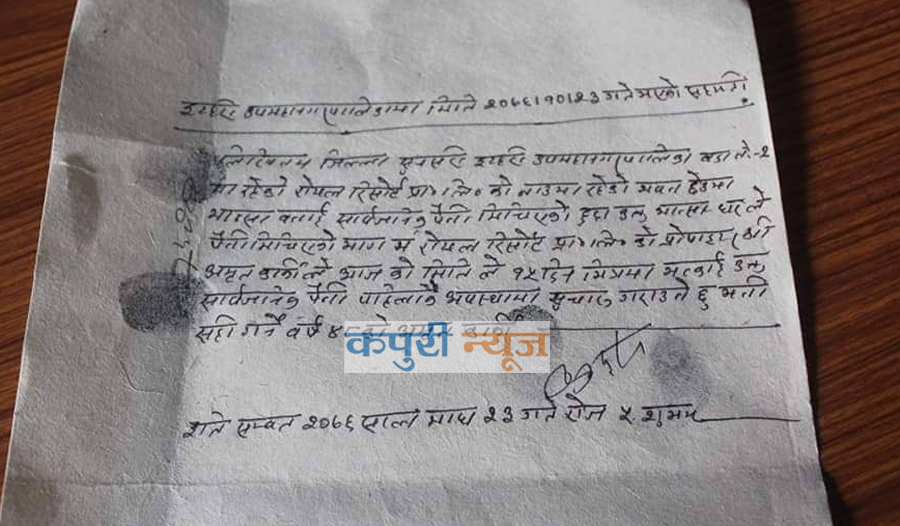 इटहरी उपमहानगरपालिकामा मिति २०७६।१०।२३ गते भएको सहमति
लिखितम् जिल्ला सुनसरी इटहरी उपमहानगरपालिका वडा नं.-२
मा रहेको रोयल रिसोर्ट प्रा०लि० को नाउमा रहेको भवन
भान्सा बनाई सार्वजनिक पैनी मिचिएको हुदा उक्त भान्सा घर ले
पैनी मिचिएको भाग म रोयल रिसोर्ट प्रा०लि० को प्रोपाइटर श्री
अमृत कार्कीले आज को मिति ले १५ दिन भित्रमा भत्काई उक्त
सार्वजनिक पैनी पहिलाकै अवस्थामा सुचारु गराउने छु भनी
सही गर्ने वर्ष
कपुरी न्यूज
इति सम्वत २०७६ साल माघ २३ गते रोज ५ शुभम्